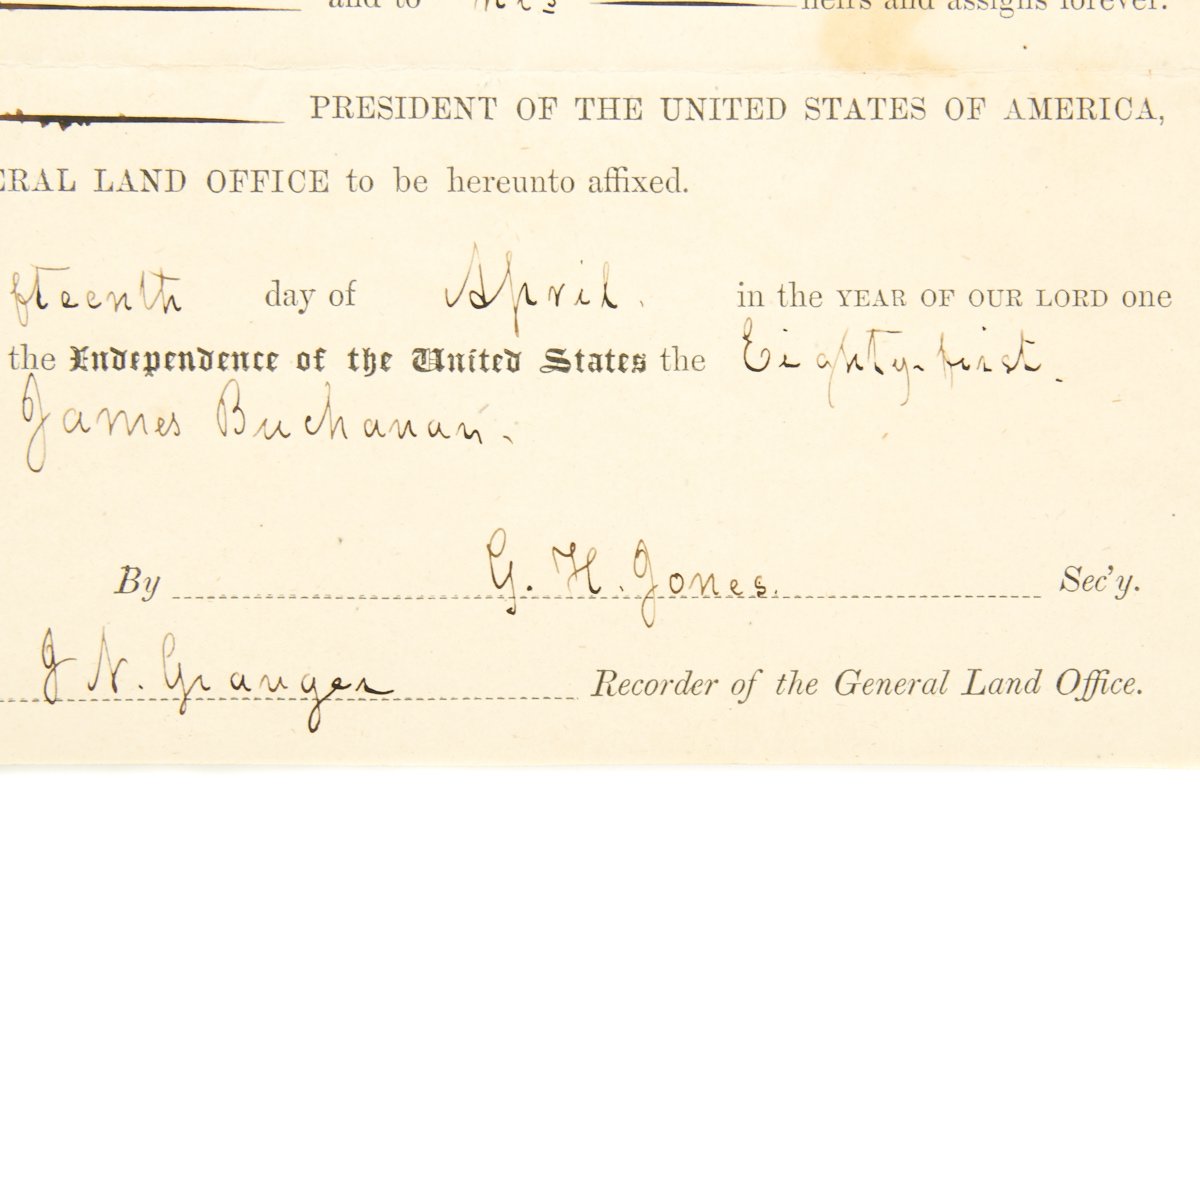 and to his heirs and assigns forever.
PRESIDENT OF THE UNITED STATES OF AMERICA,
ERAL LAND OFFICE to be hereunto affixed.
fteenth day of April. in the YEAR OF OUR LORD one
the Independence of the United States the Eighty-first.
James Buchanan.
By G. H. Jones. Sec'y.
J N. Granger Recorder of the General Land Office.